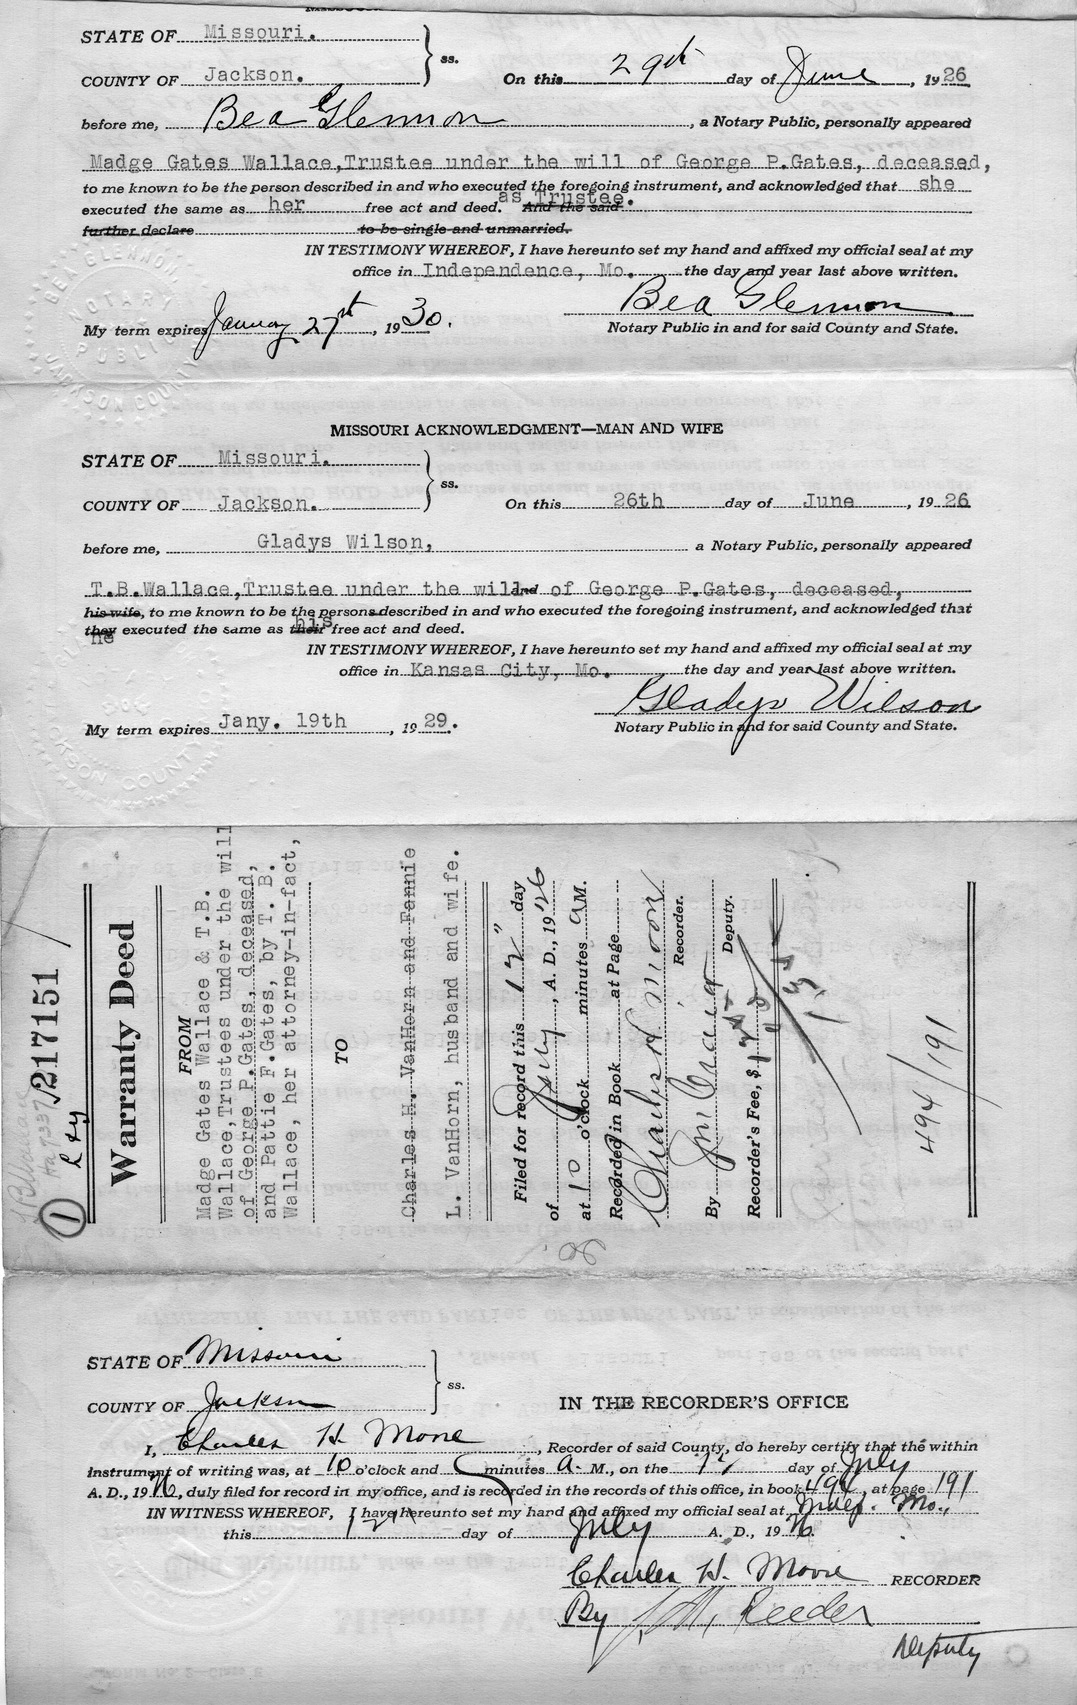 STATE OF Missouri.
COUNTY OF Jackson. ss. On this 29th day of June, 1926
before me, Bea Glennon, a Notary Public, personally appeared
Madge Gates Wallace,Trustee under the will of George P.Gates, deceased,
to me known to be the person described in and who executed the foregoing instrument, and acknowledged that she
executed the same as her free act and deed. as Trustee. And the said
further declare to be single and unmarried.
IN TESTIMONY WHEREOF, I have hereunto set my hand and affixed my official seal at my
office in Independence, Mo. the day and year last above written.
Bea Glennon
My term expires January 27st, 1930. Notary Public in and for said County and State.
BEA GLENNON
NOTARY
PUBLIC
JACKSON COUNTY
MISSOURI ACKNOWLEDGMENT—MAN AND WIFE
STATE OF Missouri.
COUNTY OF Jackson. ss. On this 26th day of June, 1926
before me, Gladys Wilson, a Notary Public, personally appeared
T.B.Wallace,Trustee under the will and of George P.Gates, deceased,
his wife, to me known to be the persons described in and who executed the foregoing instrument, and acknowledged that
they he executed the same as their his free act and deed.
IN TESTIMONY WHEREOF, I have hereunto set my hand and affixed my official seal at my
office in Kansas City, Mo. the day and year last above written.
Gladys Wilson
My term expires Jany. 19th 1929. Notary Public in and for said County and State.
JACKSON COUNTY
1
217151
Warranty Deed
FROM
Madge Gates Wallace & T.B.
Wallace,Trustees under the will
of George P.Gates, deceased,
and Pattie F.Gates, by T. B.
Wallace, her attorney-in-fact,
TO
Charles H. VanHorn and Fannie
L. VanHorn, husband and wife.
Filed for record this 12" day
of July, A. D., 1926
at 10 o'clock minutes A M.
Recorded in Book at Page
Charles H Moore
Recorder.
By
Deputy.
Recorder's Fee, $
494/191
STATE OF Missouri
COUNTY OF Jackson ss.
IN THE RECORDER'S OFFICE
I, Charles H Moore, Recorder of said County, do hereby certify that the within
instrument of writing was, at 10 o'clock and minutes A. M., on the 12 day of July
A. D., 1926, duly filed for record in my office, and is recorded in the records of this office, in book 494, at page 191
IN WITNESS WHEREOF, I have hereunto set my hand and affixed my official seal at Indep. Mo.,
this 12th day of July A. D., 1926.
Charles H. Moore RECORDER
By J. H. Reeder
Deputy